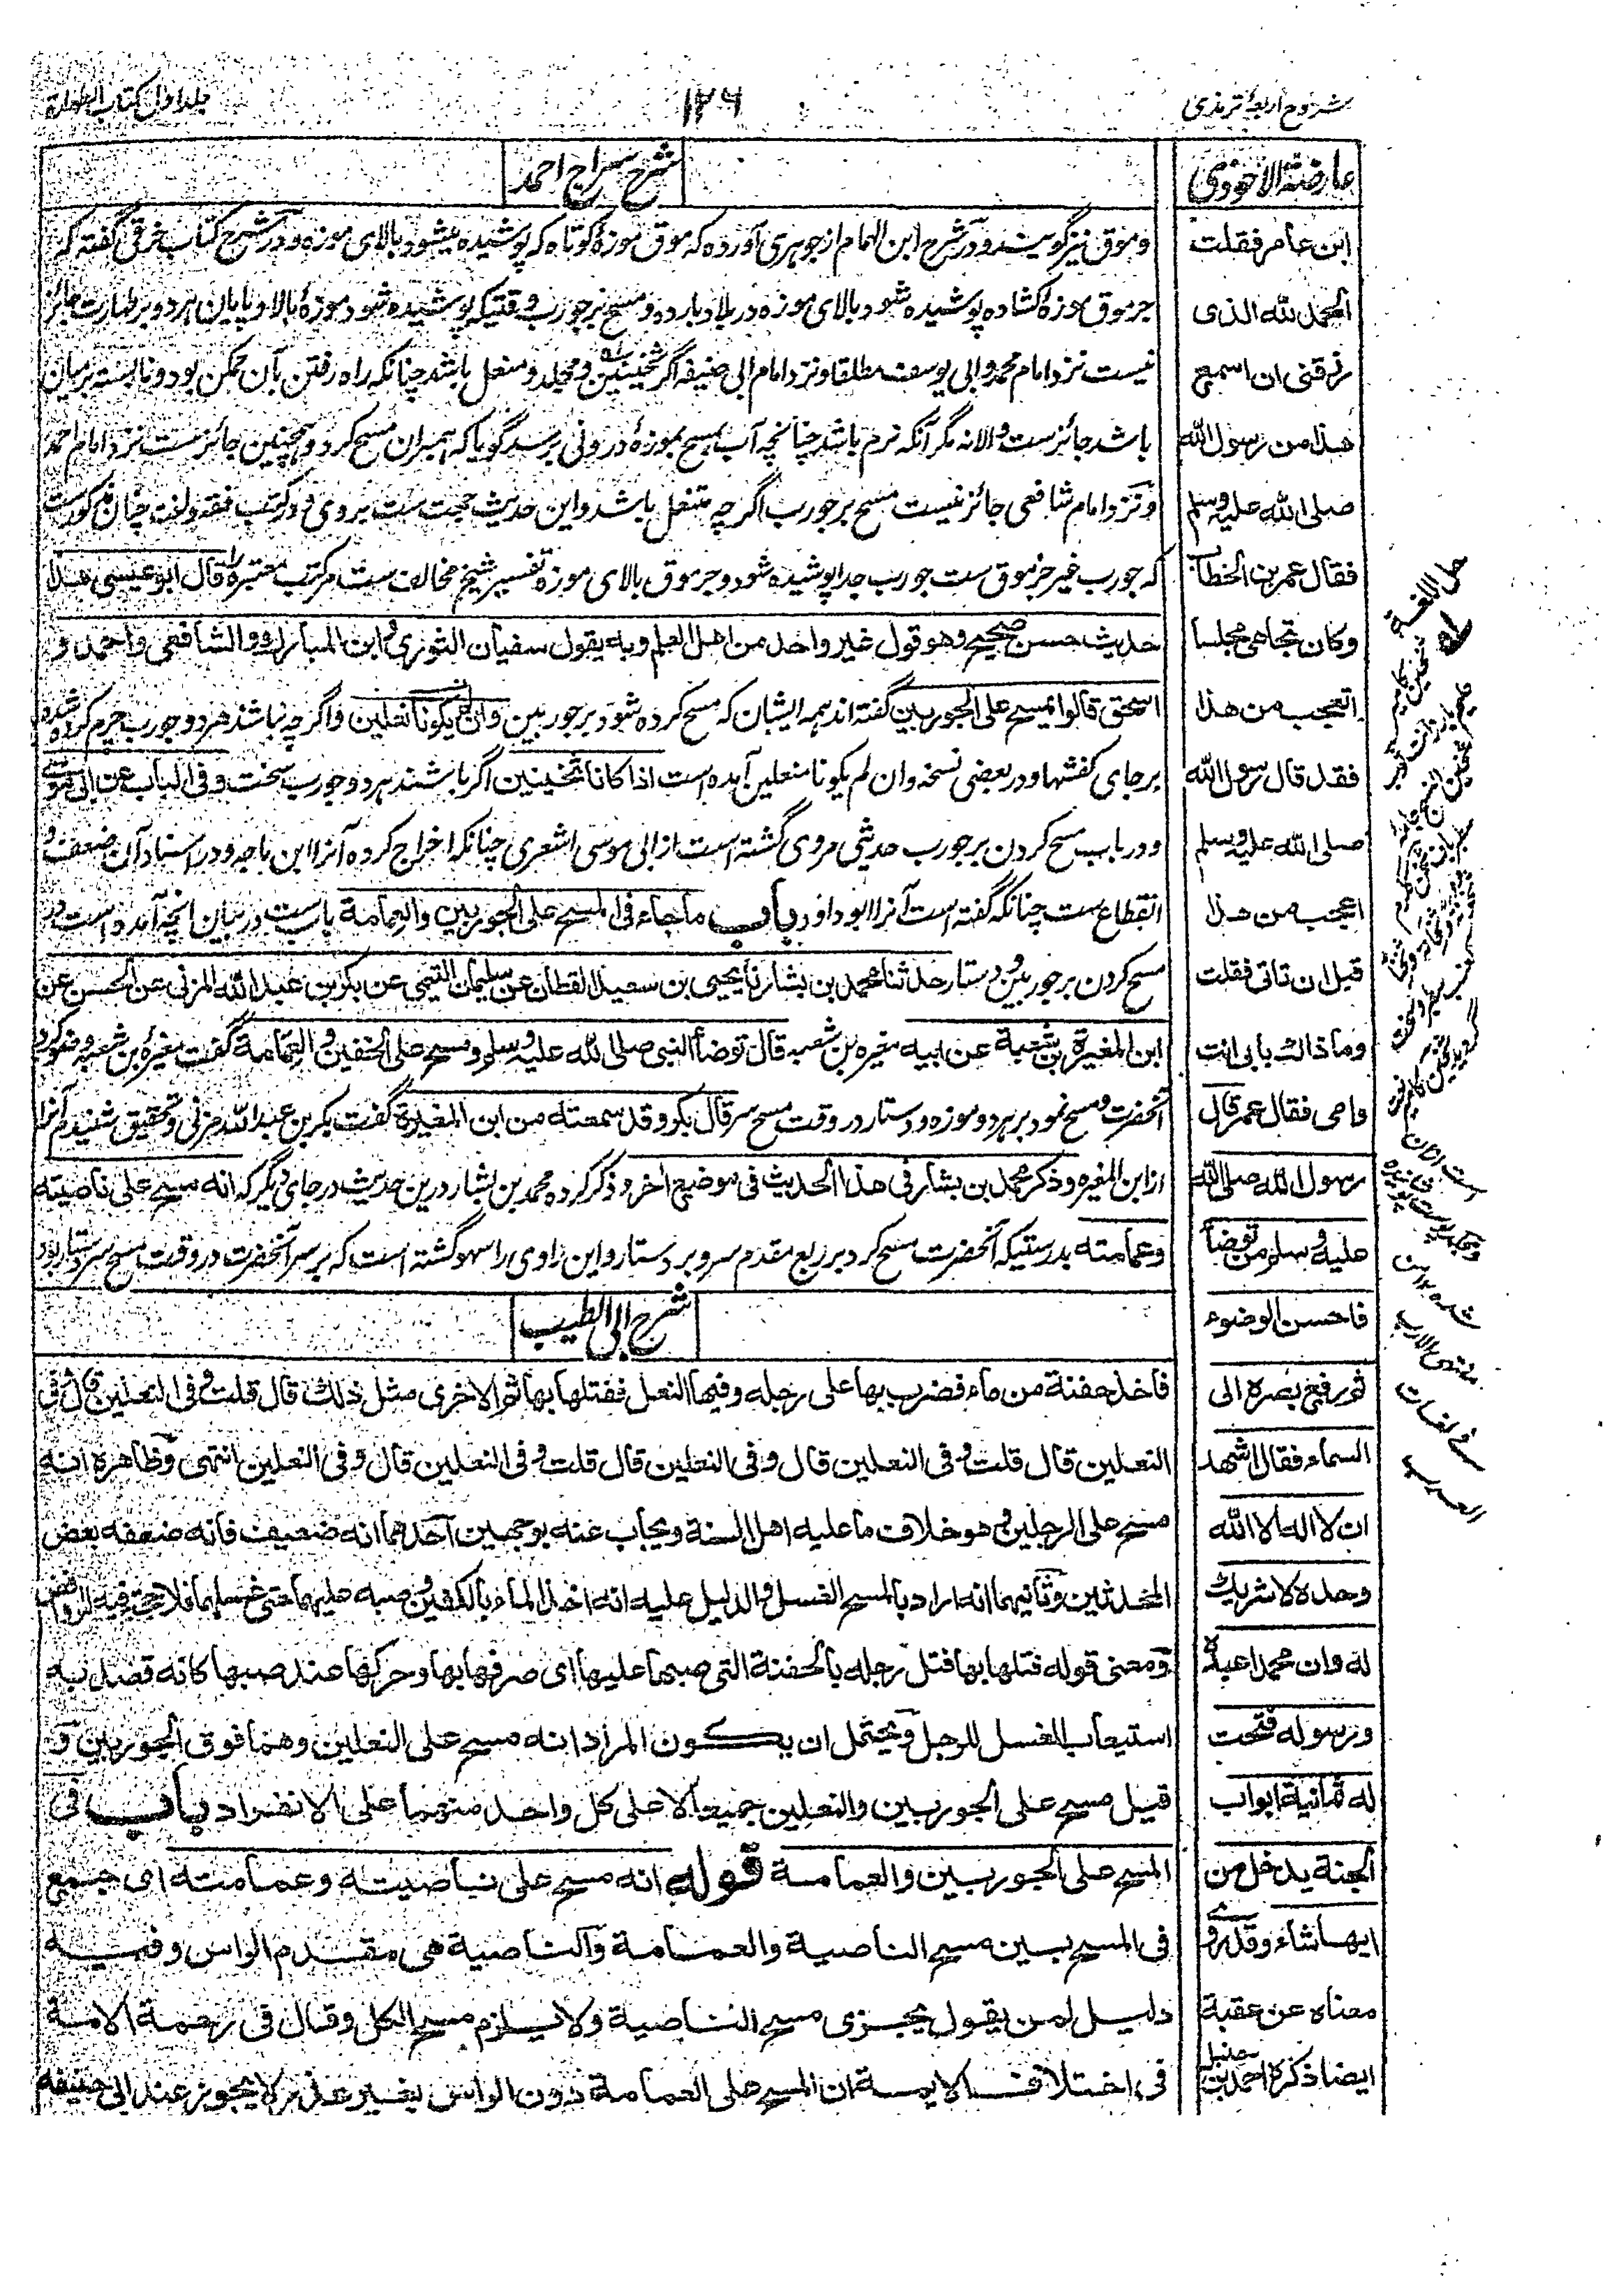 شروح اربعۂ ترمذی
۱۲۶
جلد اول کتاب الطهارة
عارضة الاحوذی
ابن عامر فقلت
الحمد لله الذی
رزقنی ان اسمع
هذا من رسول الله
صلی الله علیه وسلم
فقال عمر بن الخطاب
وکان تجاهی مجلسا
اتعجب من هذا
فقد قال رسول الله
صلی الله علیه وسلم
اعجب من هذا
قبل ان تاتی فقلت
وما ذاك بابی انت
وامی فقال عمر قال
رسول الله صلی الله
علیه وسلم من توضأ
فاحسن الوضوء
ثم رفع بصره الی
السماء فقال اشهد
ان لا اله الا الله
وحده لا شریك
له وان محمدا عبده
ورسوله فتحت
له ثمانیة ابواب
الجنة یدخل من
ایها شاء وقد روی
معناه عن عقبة
ایضا ذکره احمد بن حنبل
شرح سراج احمد
وموق نیز گویند و در شرح ابن الهمام از جوهری آورده که موق موزۂ کوتاه که پوشیده میشود بالای موزه و در شرح کتاب خرقی گفته که
جرموق موزۂ کشاده پوشیده شود بالای موزه در بلاد بارده و مسح بر جورب وقتیکه پوشیده شود موزۂ بالا و پایان هر دو بر طهارت جائز
نیست نزد امام محمد و ابی یوسف مطلقا و نزد امام ابی حنیفه اگر ثخینین و مجلد و منعل باشد چنانکه راه رفتن بآن ممکن بود و نابسته بر میان
باشد جائز ست والا نه مگر آنکه نرم باشد چنانچه آب مسح بموزۂ درونی برسد گویا که همبران مسح کرد و همچنین جائز ست نزد امام احمد
و نزد امام شافعی جائز نیست مسح بر جورب اگر چه منعل باشد و این حدیث حجت ست بروی و در کتب فقه و لغت چنان مذکور ست
که جورب غیر جرموق ست جورب جدا پوشیده شود و جرموق بالای موزه تفسیر شیخ مخالف ست مر کتب معتبره را قال ابو عیسی هذا
حدیث حسن صحیح وهو قول غیر واحد من اهل العلم وبه یقول سفیان الثوری وابن المبارك والشافعی واحمد و
اسحق قالوا یمسح علی الجوربین گفته اند همه ایشان که مسح کرده شود بر جوربین وان لم یکونا نعلین و اگر چه نباشند هر دو جورب چرم کرده شده
بر جای کفشها و در بعضی نسخه وان لم یکونا منعلین آمده است اذا کانا ثخینین اگر باشند هر دو جورب سخت وفی الباب عن ابی موسی
و در باب مسح کردن بر جورب حدیثی مروی گشته است از ابی موسی اشعری چنانکه اخراج کرده آنرا ابن ماجه و در اسناد آن ضعف و
انقطاع ست چنانکه گفته است آنرا ابو داود باب ما جاء فی المسح علی الجوربین والعمامة باب ست در بیان آنچه آمده است در
مسح کردن بر جوربین و دستار حدثنا محمد بن بشار نا یحیی بن سعید القطان عن سلیمان التیمی عن بکر بن عبد الله المزنی عن الحسن عن
ابن المغیرة بن شعبة عن ابیه مغیره بن شعبه قال توضأ النبی صلی الله علیه وسلم ومسح علی الخفین والعمامة گفت مغیرۂ بن شعبه وضو کرد
آنحضرت و مسح نمود بر هر دو موزه و دستار در وقت مسح سر قال بکر وقد سمعته من ابن المغیرة گفت بکر بن عبد الله مزنی و تحقیق شنیدم آنرا
از ابن المغیره وذکر محمد بن بشار فی هذا الحدیث فی موضع اخر و ذکر کرده محمد بن بشار درین حدیث در جای دیگر که انه مسح علی ناصیته
وعمامته بدرستیکه آنحضرت مسح کرد بر ربع مقدم سر و بر دستار و این راوی را سهو گشته است که بر سر آنحضرت در وقت مسح سر دستار بود
شرح ابی الطیب
فاخذ حفنة من ماء فضرب بها علی رجله وفیها النعل ففتلها بها ثم الاخری مثل ذلك قال قلت وفی النعلین قال وفی
النعلین قال قلت وفی النعلین قال وفی النعلین قال قلت وفی النعلین قال وفی النعلین انتهی وظاهره انه
مسح علی الرجلین وهو خلاف ما علیه اهل السنة ویجاب عنه بوجهین احدهما انه ضعیف فانه ضعفه بعض
المحدثین وثانیهما انه اراد بالمسح الغسل والدلیل علیه انه اخذ الماء بالکفین وصبه علیهما حتی غسلهما فلا حجة فیه للروافض
ومعنی قوله فتلها بها فتل رجله بالحفنة التی صبها علیها ای صرفها بها وحرکها عند صبها کانه قصد به
استیعاب الغسل للرجل ویحتمل ان یکون المراد انه مسح علی النعلین وهما فوق الجوربین و
قیل مسح علی الجوربین والنعلین جمیعا لا علی کل واحد منهما علی الانفراد باب فی
المسح علی الجوربین والعمامة قوله انه مسح علی ناصیته وعمامته ای جمع
فی المسح بین مسح الناصیة والعمامة والناصیة هی مقدم الراس وفیه
دلیل لمن یقول یجزی مسح الناصیة ولا یلزم مسح الکل وقال فی رحمة الامة
فی اختلاف الایمة ان المسح علی العمامة دون الراس بغیر عذر لا یجوز عند ابی حنیفة
حل اللغة
منتهی الارب
فی لغات
العرب